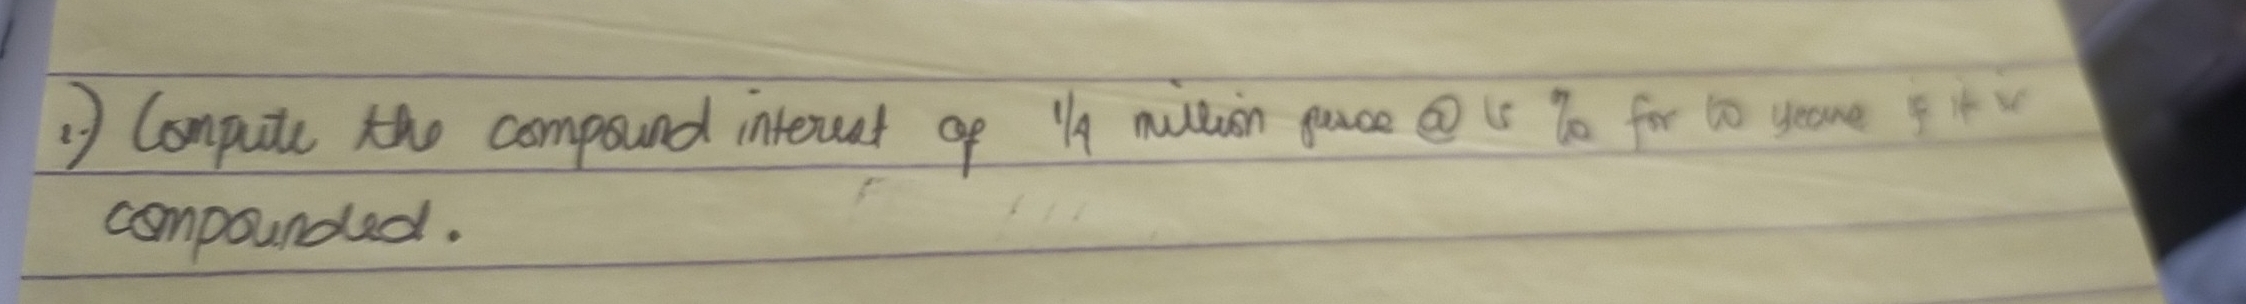 1.) Compute the compound interest of 1/4 million pesos @ 15 % for 10 years if it is
compounded.